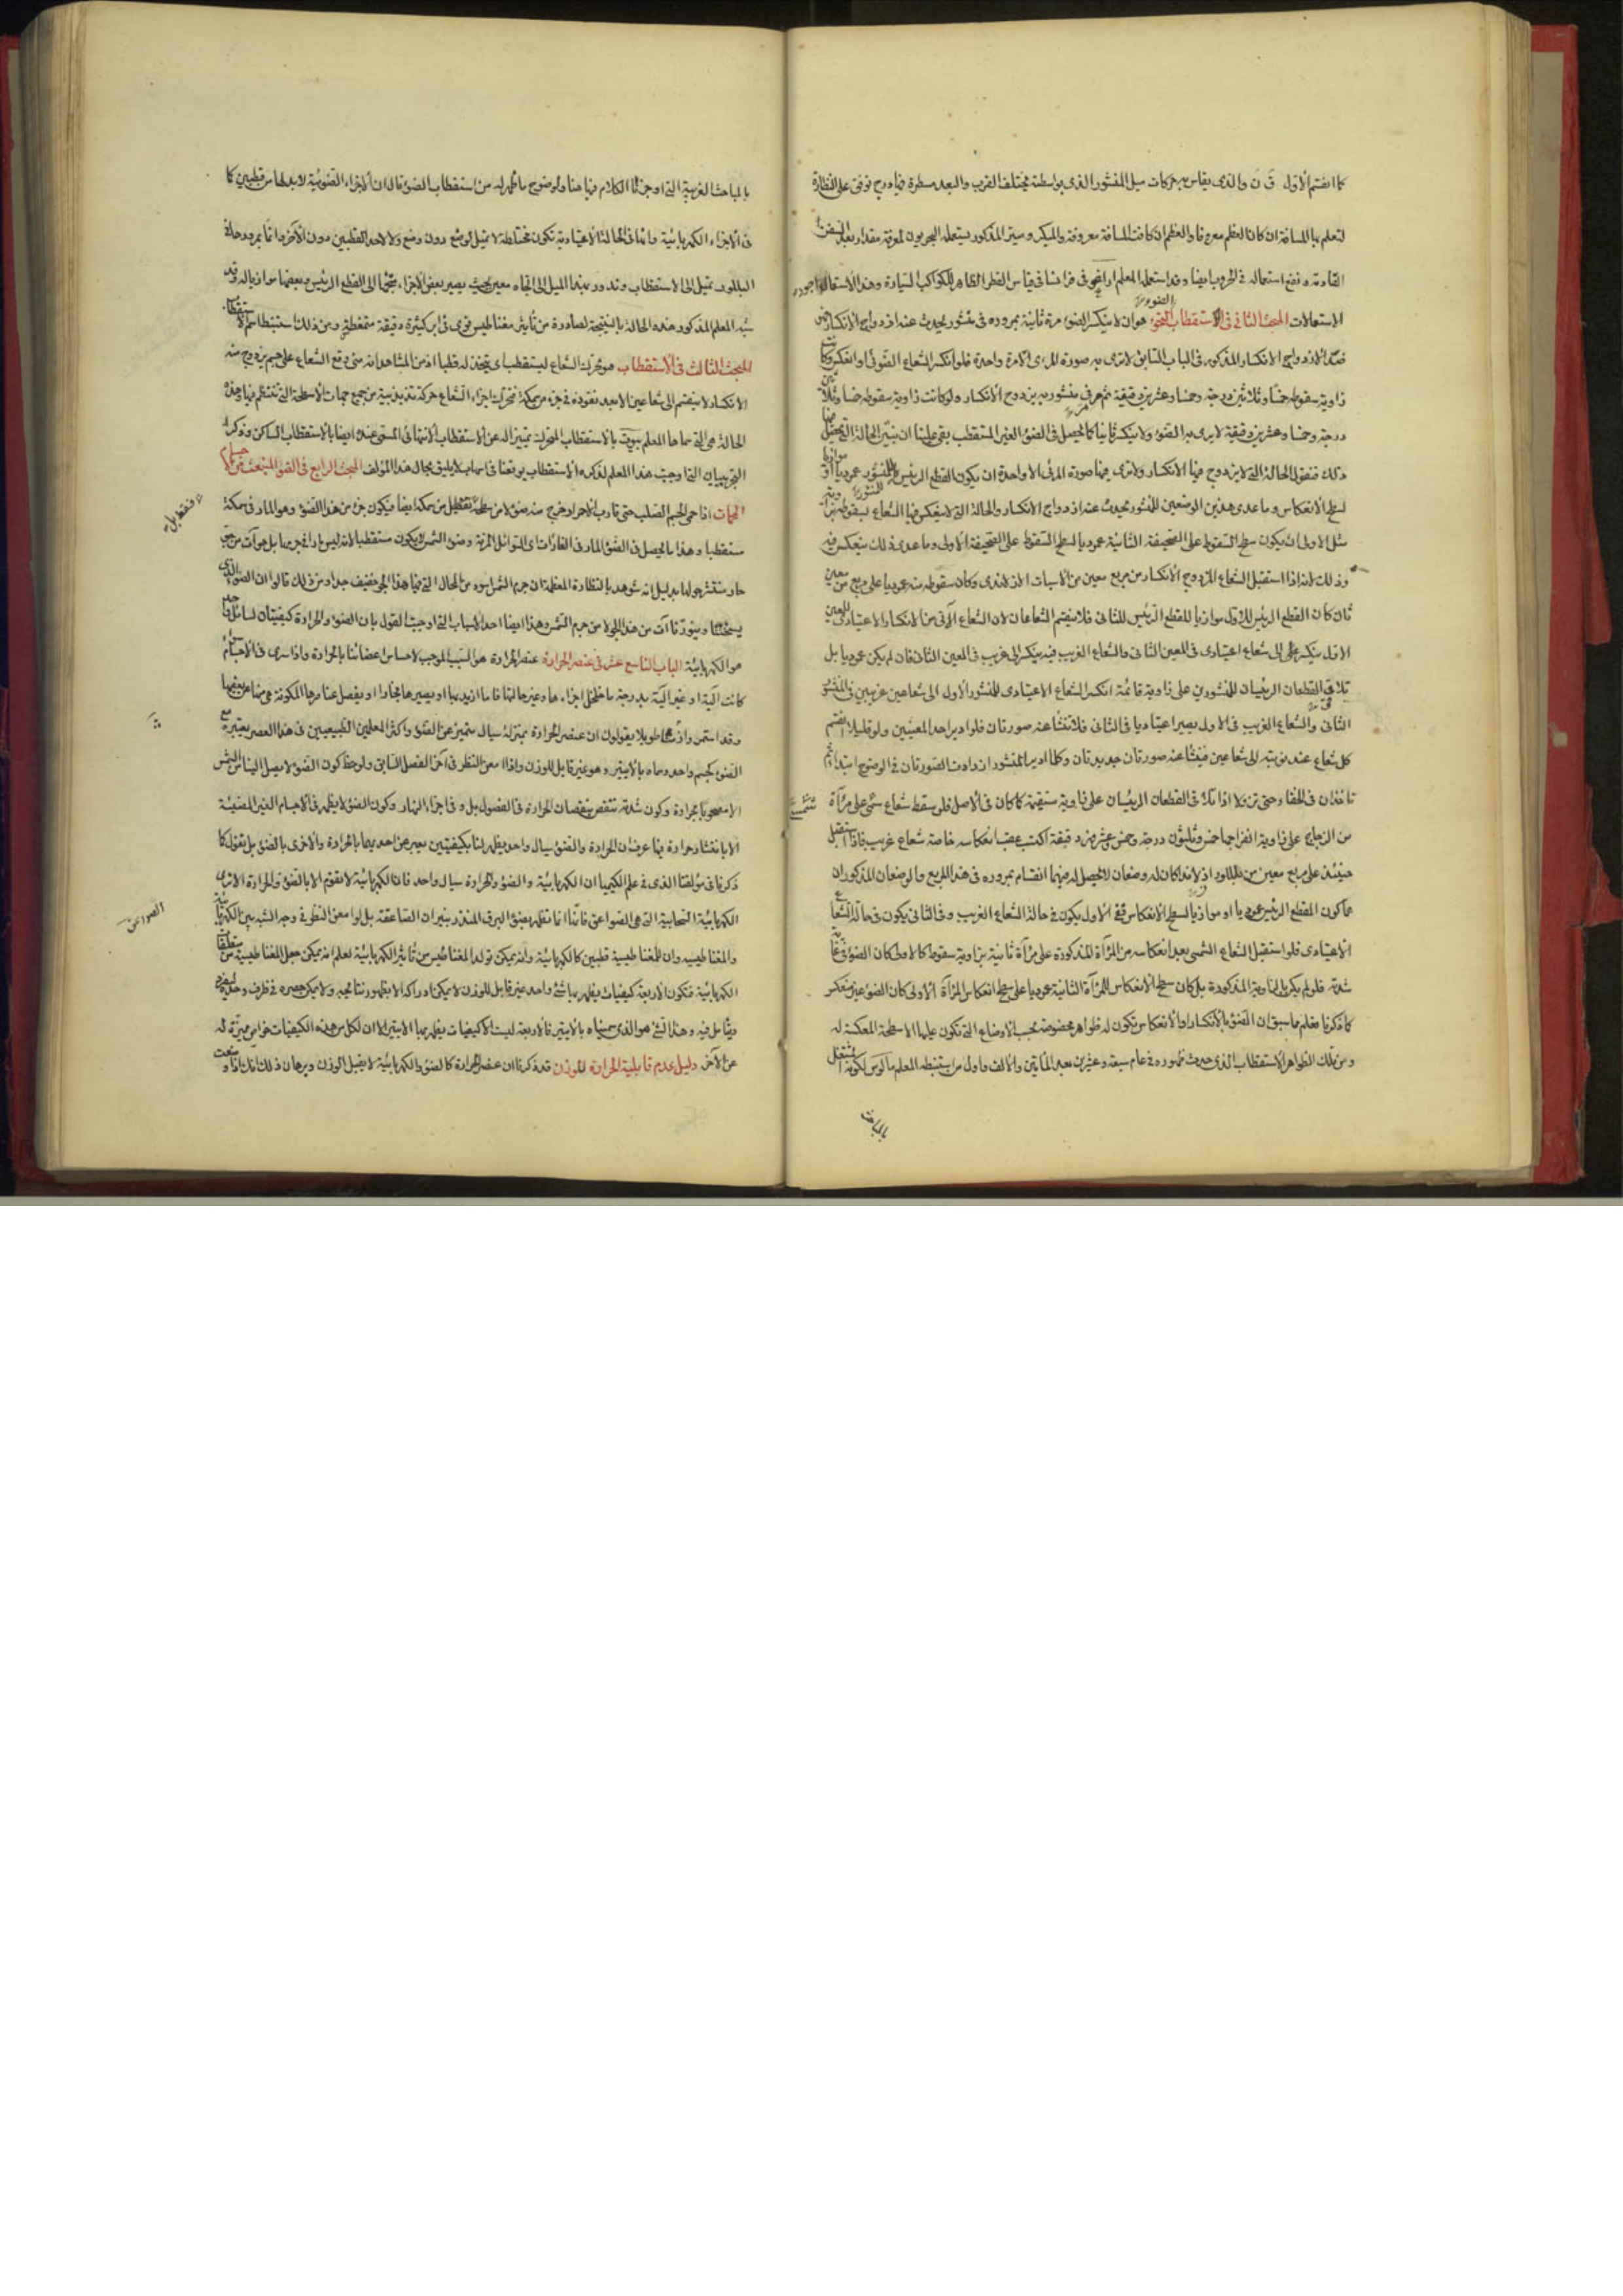 كما انقسم الاول ق ن والذى يقاس به حركات ميل المنشور الذى بواسطته مختلف القرب والبعد مسطرة فيها درج توقى على النظارة
لتعلم بها المسافة ان كان العظم معروفا والعظم ان كانت المسافة معروفة والميكروميتر المذكور يستعمله البحريون لمعرفة مقدار بعد السفن
القادمة ونفع استعماله فى الحروب ايضا وقد استعمله المعلم اراجو فى فرانسا فى قياس القطر الظاهر للكواكب السيارة وهذا الاستعمال اجود
الاستعمالات المبحث الثانى فى الاستقطاب الضوئى هو ان لا ينكسر الضوء مرة ثانية بمروره فى منشور يحدث عنه ازدواج الانكسار
ضد الازدواج الانكسار المذكور فى الباب السابق لا ترى به صورة المرئى الا مرة واحدة فلو انكسر الشعاع الضوئى او انعكس وكانت
زاوية سقوطه خمسا وثلاثين درجة وخمسا وعشرين دقيقة ثم مر فى منشور به يزدوج الانكسار ولو كانت زاوية سقوطه خمسا وثلاثين
درجة وخمسا وعشرين دقيقة لا يرى به الضوء ولا ينكسر ثانيا كما يحصل فى الضوء الغير المستقطب بقى علينا ان نبين الحالة التى يحصل فيها
ذلك فنقول الحالة التى لا يزدوج فيها الانكسار ولا ترى فيها صورة المرئى الا واحدة ان يكون القطع الرئيس للمنشور عموديا او موازيا
لسطح الانعكاس وما عدى هذين الوضعين للمنشور يحدث عنه ازدواج الانكسار والحالة التى لا ينعكس فيها الشعاع بسقوطه بزاوية
مثل الاولى ان يكون سطح السقوط على الصحيفة الثانية عموديا لسطح السقوط على الصحيفة الاولى وما عدى ذلك ينعكس فيه
وذلك انه اذا استقبل الشعاع المزدوج الانكسار من مربع معين من الاسبات الازلاندى وكان سقوطه منه عموديا على مربع معين
ثان كان القطع الرئيس للاول موازيا للقطع الرئيس للثانى فلا ينقسم الشعاعان لان الشعاع الآتى من الانكسار الاعتيادى للمعين
الاول ينكسر الى شعاع اعتيادى فى المعين الثانى والشعاع الغريب فيه ينكسر الى غريب فى المعين الثانى فان لم يكن عموديا بل
تلاقى القطعان الرئيسان للمنشورين على زاوية قائمة انكسر الشعاع الاعتيادى للمنشور الاول الى شعاعين غريبين فى المنشور
الثانى والشعاع الغريب فى الاول يصير اعتياديا فى الثانى فلا تنشأ عنه صورتان فلو ادير احد المعينين ولو قليلا انقسم
كل شعاع عند نوبته الى شعاعين فينشأ عنه صورتان جديدتان وكلما ادير المنشور ازدادت الصورتان فى الوضوح ابتدأتا
تأخذان فى الخفاء وحتى تزولا اذا تلاقى القطعان الرئيسان على زاوية مستقيمة كما كان فى الاصل فلو سقط شعاع شمسى على مرآة
من الزجاج على زاوية انفراجها خمس وثلثون درجة وخمس وعشرون دقيقة اكتسب عقب انعكاسه خاصة شعاع غريب فاذا استقبل
حينئذ على مربع معين من البللور الازلاندى كان له وضعان لا يحصل له فيهما انقسام بمروره فى هذا المربع والوضعان المذكوران
هما كون المقطع الرئيس عموديا او موازيا لسطح الانعكاس ففى الاول يكون فى حالة الشعاع الغريب وفى الثانى يكون فى حالة الشعاع
الاعتيادى فلو استقبل الشعاع الشمسى بعد انعكاسه من المرآة المذكورة على مرآة ثانية بزاوية سقوط كالاولى كان الضوء فى غاية
شدته فلو لم يكن بالزاوية المذكورة بل كان سطح الانعكاس للمرآة الثانية عموديا على سطح انعكاس المرآة الاولى كان الضوء غير منعكس
كما ذكرنا فعلم مما سبق ان الضوء بالانكسار او الانعكاس تكون له ظواهر مخصوصة بحسب الاوضاع التى تكون عليها الاسطحة المعكسة له
ومن تلك الظواهر الاستقطاب الذى حدث ظهوره فى عام سبعة وعشرين بعد المائتين والالف واول من استنبطه المعلم مالوس لكونه اشتغل
بالمباحث
بالمباحث الغربية التى اوجزنا الكلام فيها هنا ولوضوح ما ظهر له من استقطاب الضوء قال ان الاجزاء الضوئية لابد لها من قطبين كما
فى الاجزاء الكهربائية وانها فى الحالة الاعتيادية تكون مختلطة لا تميل لوضع دون وضع ولا لاحد القطبين دون الآخر وانما بمرورها فى
البللور تميل الى الاستقطاب وتدور بهذا الميل الى اتجاه معين بحيث يصير بعض الاجزاء متجها الى القطع الرئيس وبعضها موازيا له وقد
شبه المعلم المذكور هذه الحالة بالنتيجة الصادرة من تأثير مغناطيس قوى فى ابر كثيرة دقيقة ممغطة ومن ذلك استنبط اسم الاستقطاب
المبحث الثالث فى الاستقطاب هو تحرك الشعاع ليستقطب اى يتخذ له قطبا اذ من المشاهد انه متى وقع الشعاع على جسم يزدوج منه
الانكسار لا ينقسم الى شعاعين الا بعد نفوذه فى جزء من سمكه فتحرك اجزاء الشعاع حركة تذبذبية من جميع جهات الاسطحة التى تنتظم فيها وهذه
الحالة هى التى سماها المعلم بيوت بالاستقطاب المتحرك تمييزا له عن الاستقطاب الانتهائى المسمى عنده ايضا بالاستقطاب الساكن وذكر
التجريبيات التى اوجبت هذا المعلم لذكر الاستقطاب يوقعنا فى اسهاب لا يليق بمجال هذا المؤلف المبحث الرابع فى الضوء المنبعث من الاجسام
الحمات اذا حمى الجسم الصلب حتى قارب الاحمرار خرج منه ضوء لا من سطحه فقط بل من سمكه ايضا فيكون جزء من هذا الضوء وهو المار فى سمكه
مستقطبا وهذا ما يحصل فى الضوء المار فى الغازات اى السوائل المرنة وضوء الشمس لا يكون مستقطبا لانه ليس بارا فى جرمها بل هو آت من جو
حار منتشر حولها بدليل انه شوهد بالنظارة المعظمة ان جرم الشمس اسود من المحال التى فيها هذا الجو خفيف جدا ومن ذلك قالوا ان الضوء الذى
يسخننا وينورنا آت من هذا الجو لا من جرم الشمس وهذا ايضا احد الاسباب التى اوجبت القول بان الضوء والحرارة كيفيتان لسائل واحد
هو الكهربائية الباب التاسع عشر فى عنصر الحرارة عنصر الحرارة هو السبب الموجب لاحساس اعضائنا بالحرارة واذا سرى فى الاجسام
كانت آلية او غير آلية بدرجة ما خلخل اجزاءها وغير حالتها فاما ان يذيبها او يصيرها بخارا او يفصل عناصرها المكونة هى منها عن بعضها
وقد استمروا زمنا طويلا يقولون ان عنصر الحرارة بمنزلة سيال متميز عن الضوء واكثر المعلمين الطبيعيين فى هذا العصر يعتبره مع
الضوء كجسم واحد وسماه بالايتير وهو غير قابل للوزن واذا امعن النظر فى آخر الفصل السابق ولوحظ كون الضوء لا يصل الينا من الشمس
الا مصحوبا بحرارة وكون شدته تنقص بنقصان الحرارة فى الفصول بل وفى اجزاء النهار وكون الضوء لا يظهر فى الاجسام الغير المضيئة
الا بانتشار حرارة فيها عرف ان الحرارة والضوء سيال واحد يظهر لنا بكيفيتين يعبر عن احديهما بالحرارة والاخرى بالضوء بل نقول كما
ذكرنا فى مؤلفنا الذى فى علم الكيميا ان الكهربائية والضوء والحرارة سيال واحد فان الكهربائية لا تقوم الا بالضوء والحرارة الا ترى
الكهربائية السحابية التى هى الصواعق فانها انما تظهر بضوء البرق المنذر بنيران الصاعقة بل لو امعن النظر فى وجه الشبه بين الكهربائية
والمغناطيسية وان للمغناطيسية قطبين كالكهربائية وانه يمكن تولد المغناطيس من تأثير الكهربائية لعلم انه يمكن جعل المغناطيسية من متعلقات
الكهربائية فتكون الاربعة كيفيات يظهر بها شئ واحد غير قابل للوزن لا يمكن ادراكه الا بظهور نتائجه ولا يمكن حصره فى ظرف وحده
ويقابل فيه وهذا الشئ هو الذى سميناه بالايتير فالاربعة ليست الا كيفيات يظهر بها الايتير الا ان لكل من هذه الكيفيات خواص مميزة له
عن الآخر دليل عدم قابلية الحرارة للوزن قد ذكرنا ان عنصر الحرارة كالضوء والكهربائية لا يقبل الوزن وبرهان ذلك انك اذا وضعت
فقط بل
الصواعق